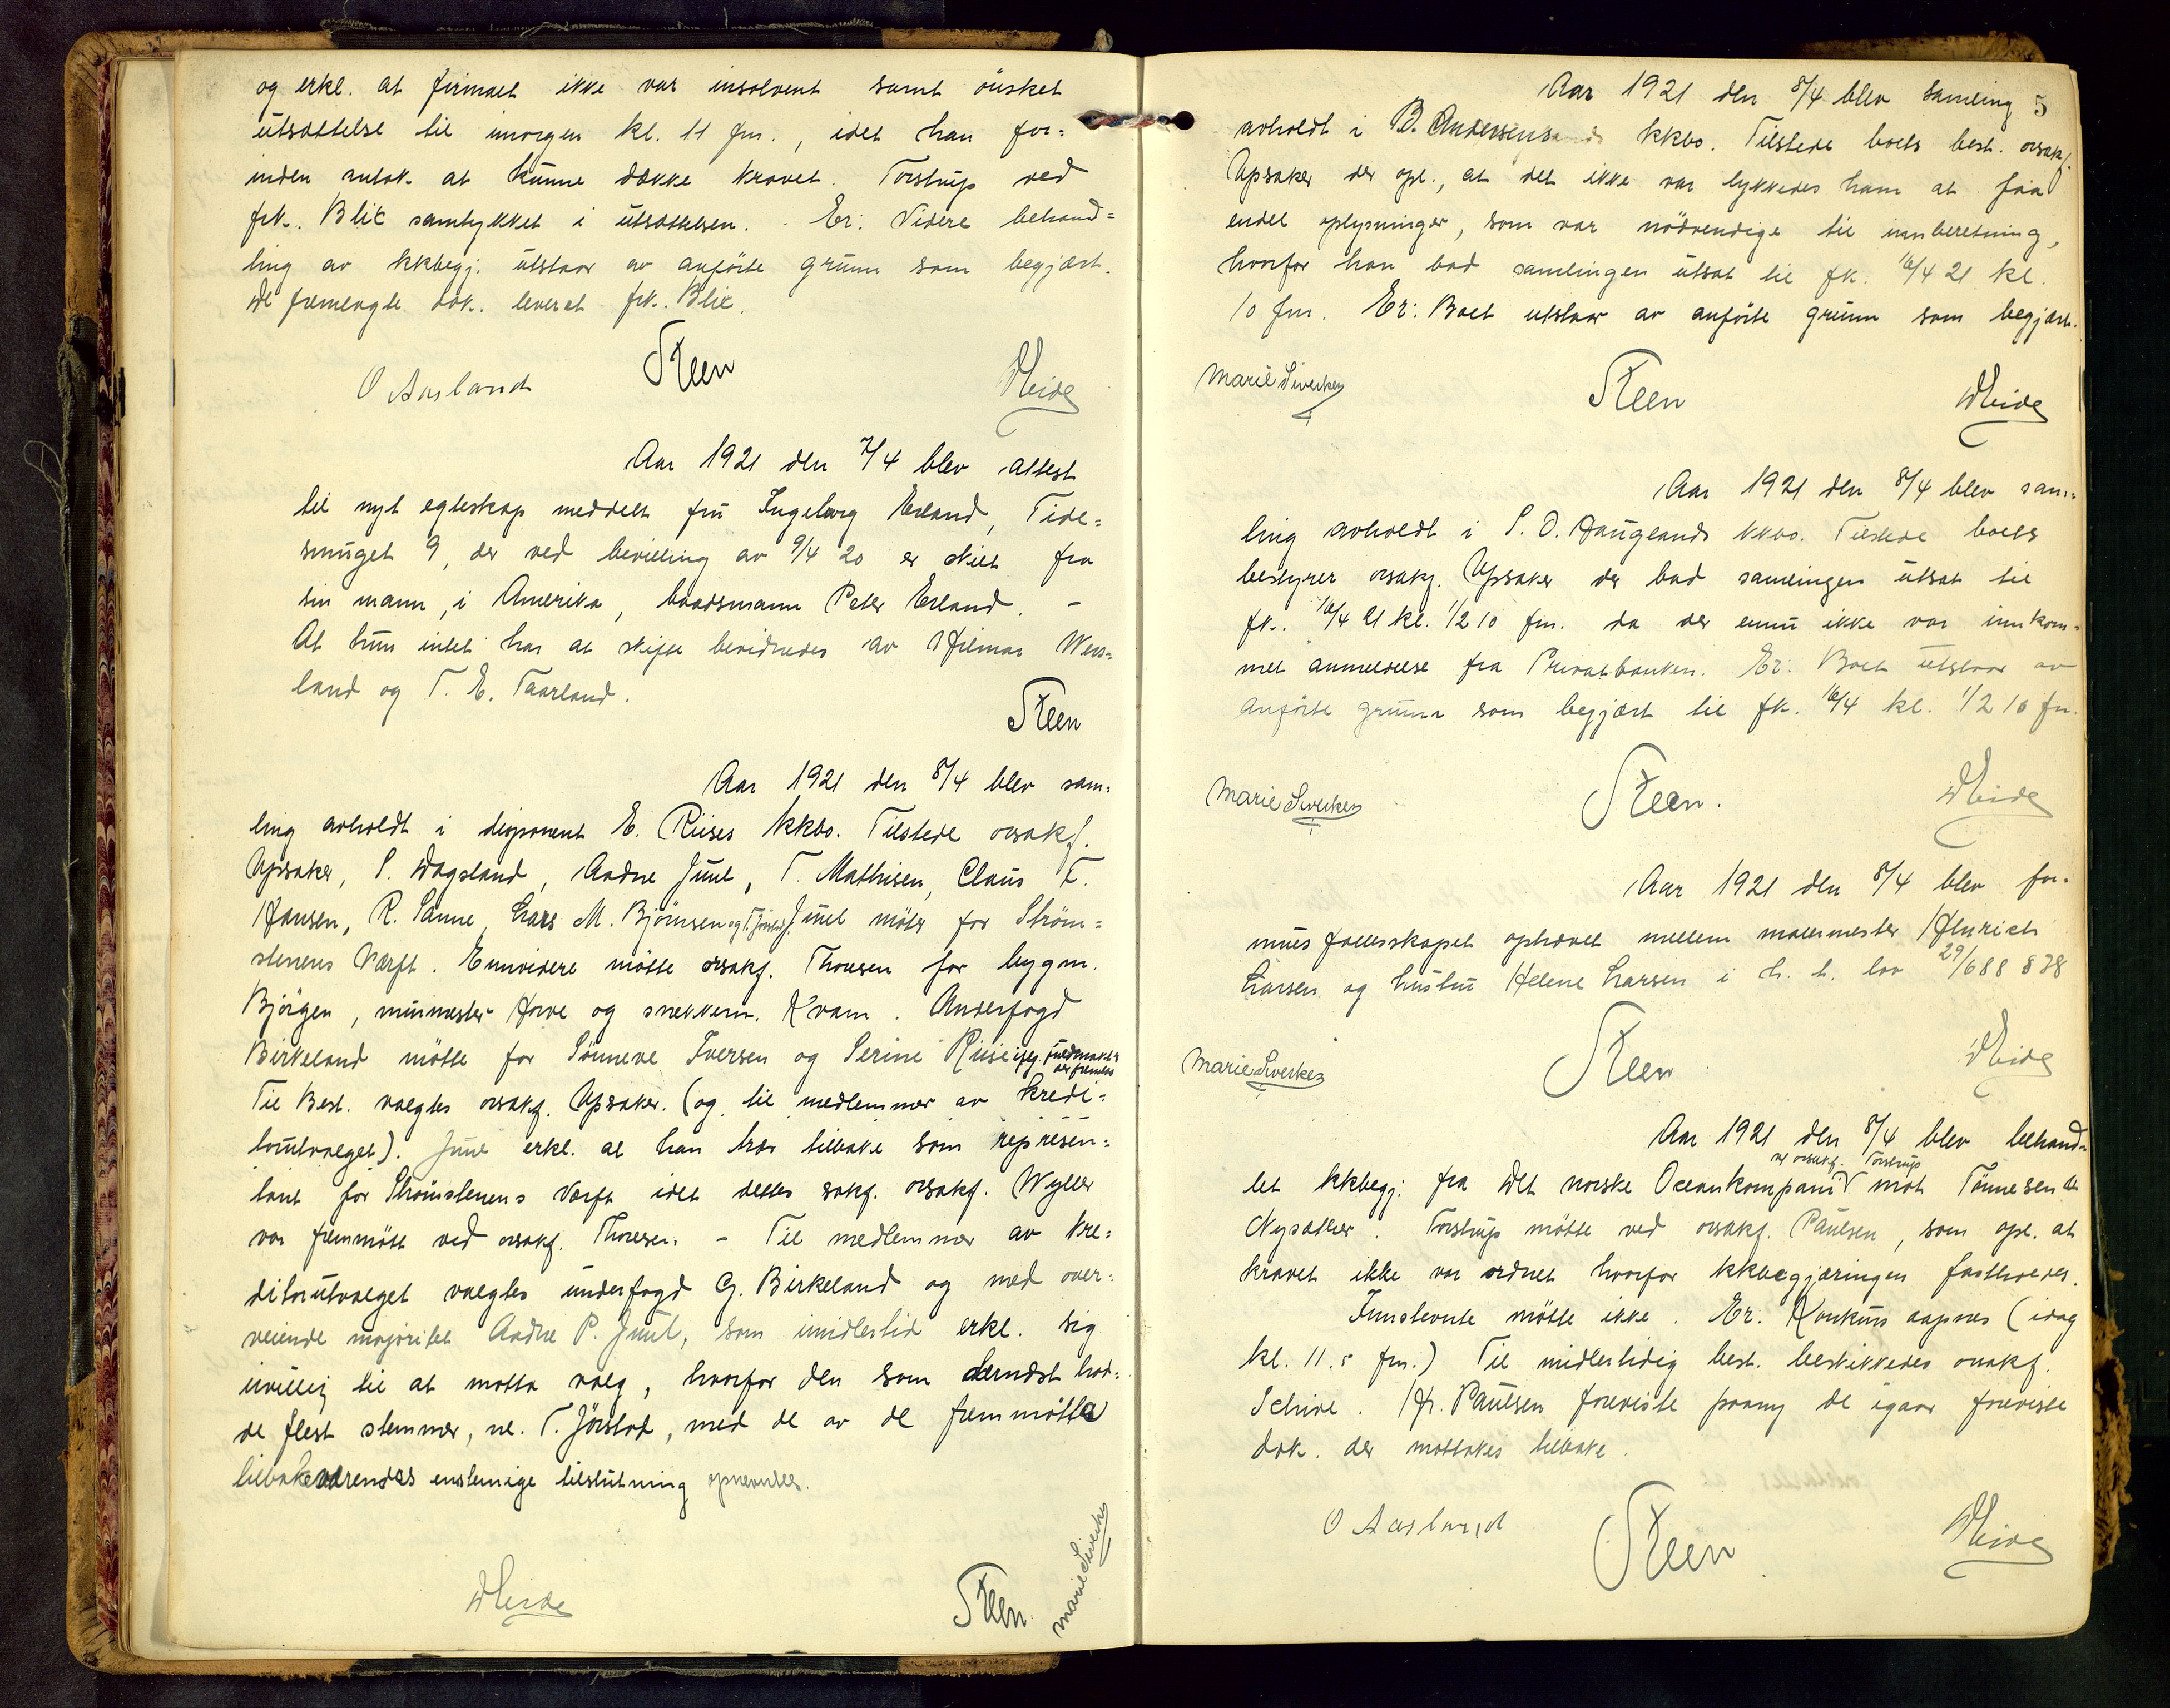 og erkl. at firmaet ikke var insolvent samt ønsket
utsættelse til imorgen kl. 11 fm., idet han for-
inden antok at kunne dække kravet. Torstrup ved
frk. Blix samtykket i utsættelsen. Er: Videre behand-
ling av kkbegj. utstaar av anførte grunn som begjært.
De fremlagte dok. leveret frk. Blix.
O Aasland Steen Heide
Aar 1921 den 7/4 blev attest
til nyt egteskap meddelt fru Ingeborg Erland, Tide-
smuget 9, der ved bevilling av 9/4 20 er skilt fra
sin mann, i Amerika, baadsmann Peter Erland. -
At hun intet har at skifte bevidnedes av Hilmar
land og T. E. Taarland.
Steen
Aar 1921 den 8/4 blev sam-
ling avholdt i disponent E. Riises kkbo. Tilstede orsakf.
Upsaker, S. Dagsland, Aadne Juul, T. Mathisen, Claus F.
Hansen, R. Sanne, Lars M. Bjørnsen og T. Jørstad. Juul møter for Strøm-
stenens Værft. Ennvidere møtte orsakf. Thoresen for bygm.
Bjørgen, murmester Hove og snekkerm. Kvam. Underfogd
Birkeland møtte for Sønneve Iversen og Serine Riise
Til Best. valgtes orsakf. Upsaker. (og til medlemmer av kredi-
torutvalget). Juul erkl. at han trær tilbake som represen-
tant for Strømstenens Værft idet dettes sakf. orsakf. Wyller
var fremmøtt ved orsakf. Thoresen. - Til medlemmer av kre-
ditorutvalget valgtes underfogd G. Birkeland og med over-
veiende majoritet Aadne P. Juul, som imidlertid erkl. sig
uvillig til at motta valg, hvorfor den som dernæst had-
de flest stemmer, nl. T. Jørstad, med de av de fremmøtte
tilbakeværendes enstemige tilslutning opnevntes.
Heide Steen Marie Sivertsen
5
Aar 1921 den 8/4 blev samling
avholdt i B. Andersens kkbo. Tilstede boets best. orsakf.
Upsaker der opl., at det ikke var lykkedes ham at faa
endel oplysninger, som var nødvendige til innberetning,
hvorfor han bad samlingen utsat til fk. 16/4 21 kl.
10 fm. Er: Boet utstaar av anførte grunn som begjært.
Marie Sivertsen Steen Heide
Aar 1921 den 8/4 blev sam-
ling avholdt i S. O. Hauglands kkbo. Tilstede boets
bestyrer orsakf. Upsaker der bad samlingen utsat til
fk. 16/4 21 kl. 1/2 10 fm. da der ennu ikke var innkom-
met anmeldelse fra Privatbanken. Er: Boet utstaar av
anførte grunn som begjært til fk. 16/4 kl. 1/2 10 fm.
Marie Sivertsen Steen. Heide
Aar 1921 den 8/4 blev for-
muesfællesskapet ophævet mellem malermester Hinrich
Larsen og hustru Helene Larsen i h. t. lov 29/6 88 § 38
Marie Sivertsen Steen Heide
Aar 1921 den 8/4 blev behand-
ved orsakf. Torstrup
let kkbegj. fra Det norske Oceankompani mot Tønnesen &
Nysæther. Torstrup møtte ved orsakf. Paulsen, som opl. at
kravet ikke var ordnet hvorfor kkbegjæringen fastholdes.
Innstevnte møtte ikke. Er. Konkurs aapnes (idag
kl. 11.5 fm.) Til midlertidig best. beskikkedes orsakf.
Schive. Hr. Paulsen foreviste paany de igaar foreviste
dok. der mottokes tilbake.
O Aasland Steen Heide